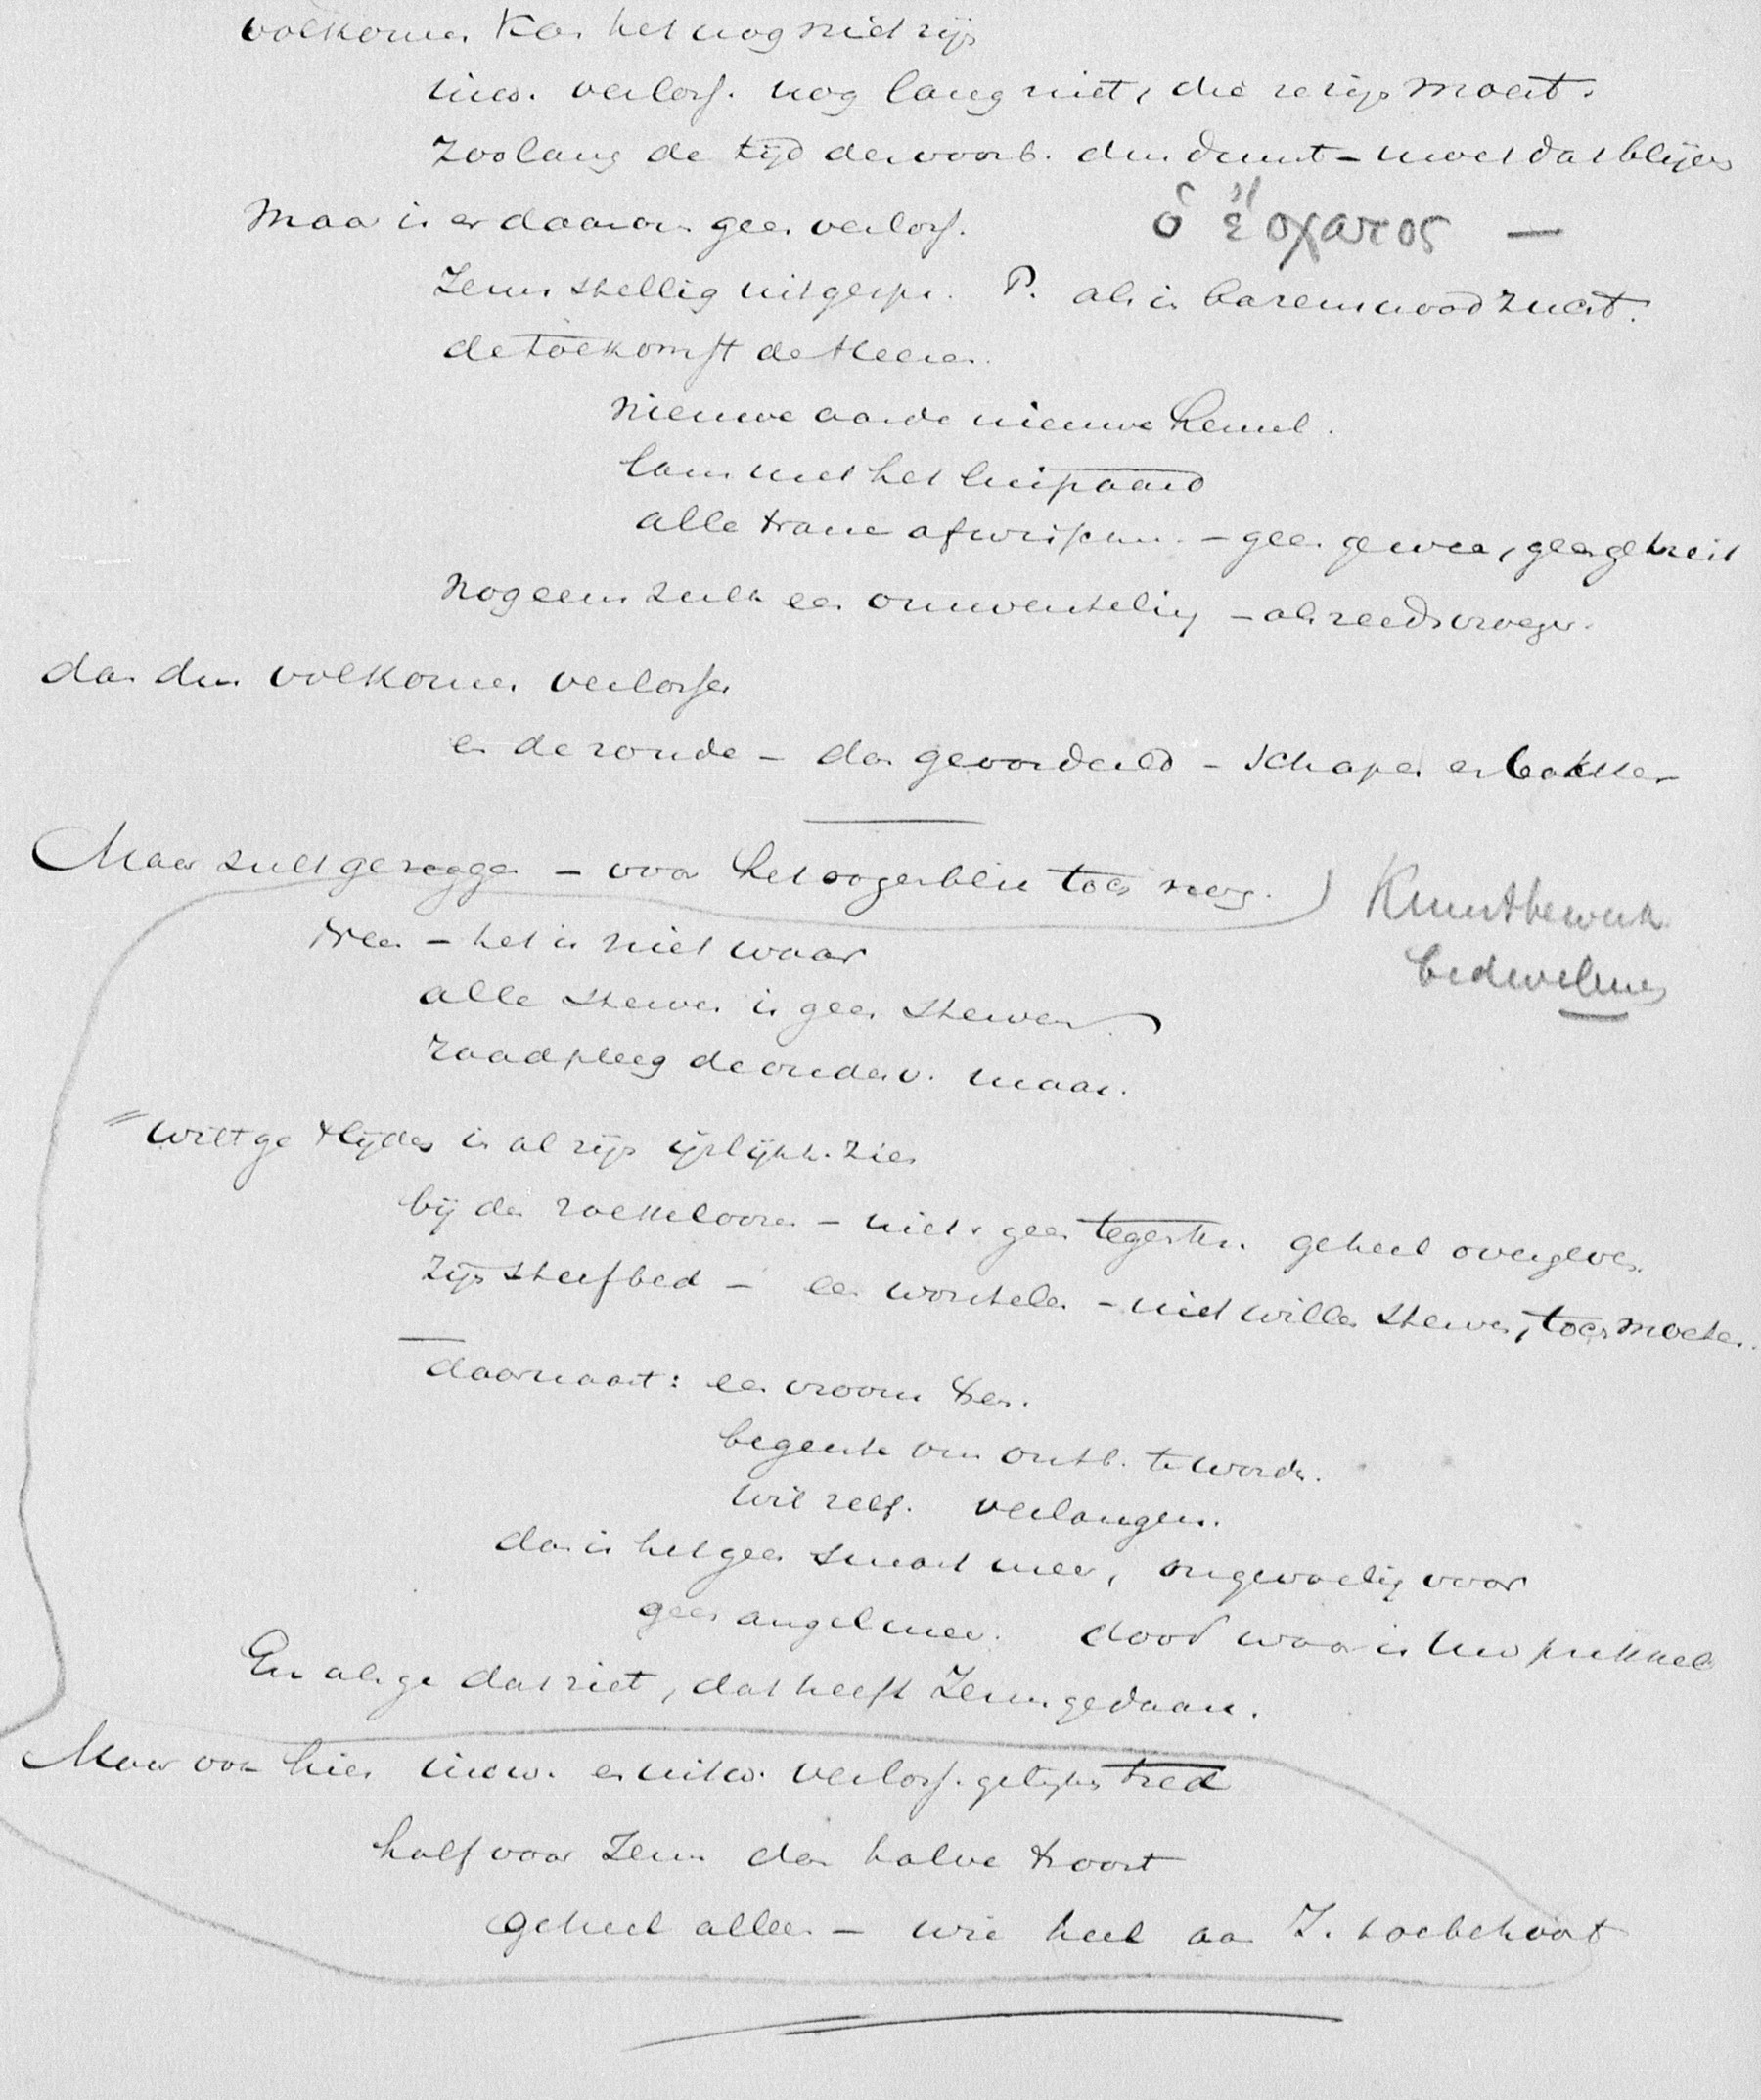 volkomen kan het nog niet zijn
inw. verloss. nog lang niet, die ze zijn moest.
zoolang de tijd der voorb. dus duurt – moet dat blijven
Maar is er daarom geen verloss.
ὁ ἔσχατος —
Jezus stellig uitgespr. P. als in barensnood zucht.
de toekomst des Heeren.
nieuwe aarde nieuwe hemel.
lam met het luipaard
alle tranen afwisschen – geen geween, geen gekrijt
nog eens zulk een omwenteling – als reeds vroeger.
dan dus volkomen verlossen
en de zonde – dan geoordeeld – schapen en bokken
Maar zult ge zeggen – voor het oogenblik toch nog.
Kunstbewerk.
bedwelmen
Neen – het is niet waar
alle sterven is geen sterven.
raadpleeg de onderv. maar.
Wilt ge 't lijden in al zijn ijslijkh. zien
bij den roekeloozen – niets geen tegenst. geheel overgeven.
zijn sterfbed – een worstelen – niet willen sterven, toch moeten.
daarnaast: een vroom ster.
begeerte om ontb. te worden.
wil zelf. verlangen.
dan is het geen smart meer, ongevoelig voor
geen angel meer. dood waar is uw prikkel
En als ge dat ziet, dat heeft Jezus gedaan.
Maar ook hier inw. en uitw. verloss. gelijken tred
half voor Jezus dan halve troost
geheel alleen – wie heel aan J. toebehoort